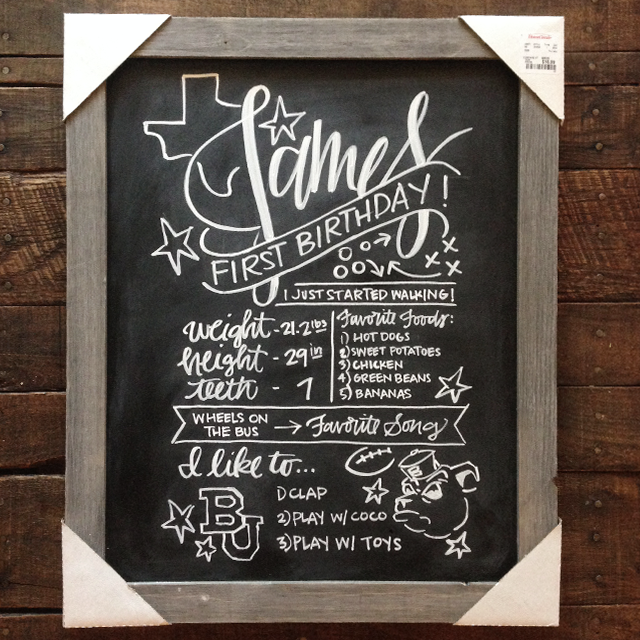 James
FIRST BIRTHDAY!
I JUST STARTED WALKING!
weight - 21.2 lbs
height - 29 in
teeth - 7
Favorite Foods:
1) HOT DOGS
2) SWEET POTATOES
3) CHICKEN
4) GREEN BEANS
5) BANANAS
WHEELS ON
THE BUS → Favorite Song
I like to...
1) CLAP
2) PLAY W/ COCO
3) PLAY W/ TOYS
BU